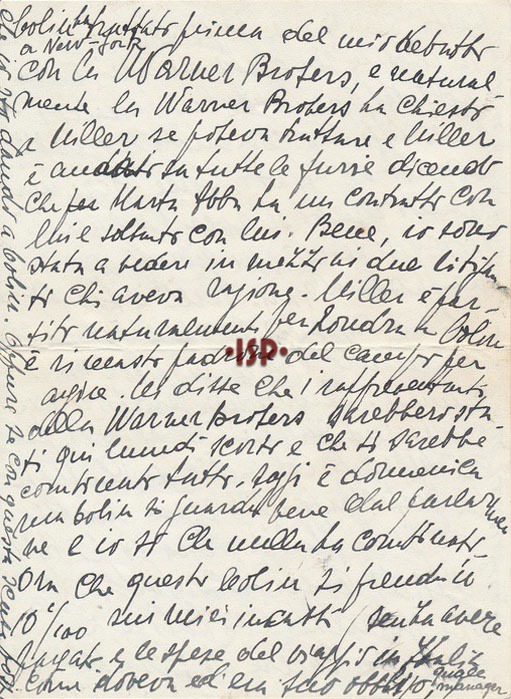 Colin ha trattato prima del mio debutto
a New-York
con la Warner Brofers, e natural-
mente la Warner Brofers ha chiesto
a Miller se poteva trattare e Miller
è andato su tutte le furie dicendo
che per Marta Abba ha un contratto con
lui e soltanto con lui. Bene, io sono
stata a vedere in mezzo ai due litigan-
ti chi aveva ragione. Miller è par-
tito naturalmente per Londra e Colin
è rimasto padrone del campo per
agire. Mi disse che i rappresentanti
della Warner Brofers sarebbero sta-
ti qui lunedì scorso e che si sarebbe
combinato tutto. Oggi è domenica
ma Colin si guarda bene dal parlar
ne e io so che nulla ha combinato.
Ora che questo Colin si prenda il
10%00 sui miei incassi senza avere
pagato le spese del viaggio in Italia
come doveva ed era suo obbligo quale
manager
che io sto dando a Colin. Oppure se con questa scusa
·ISP·